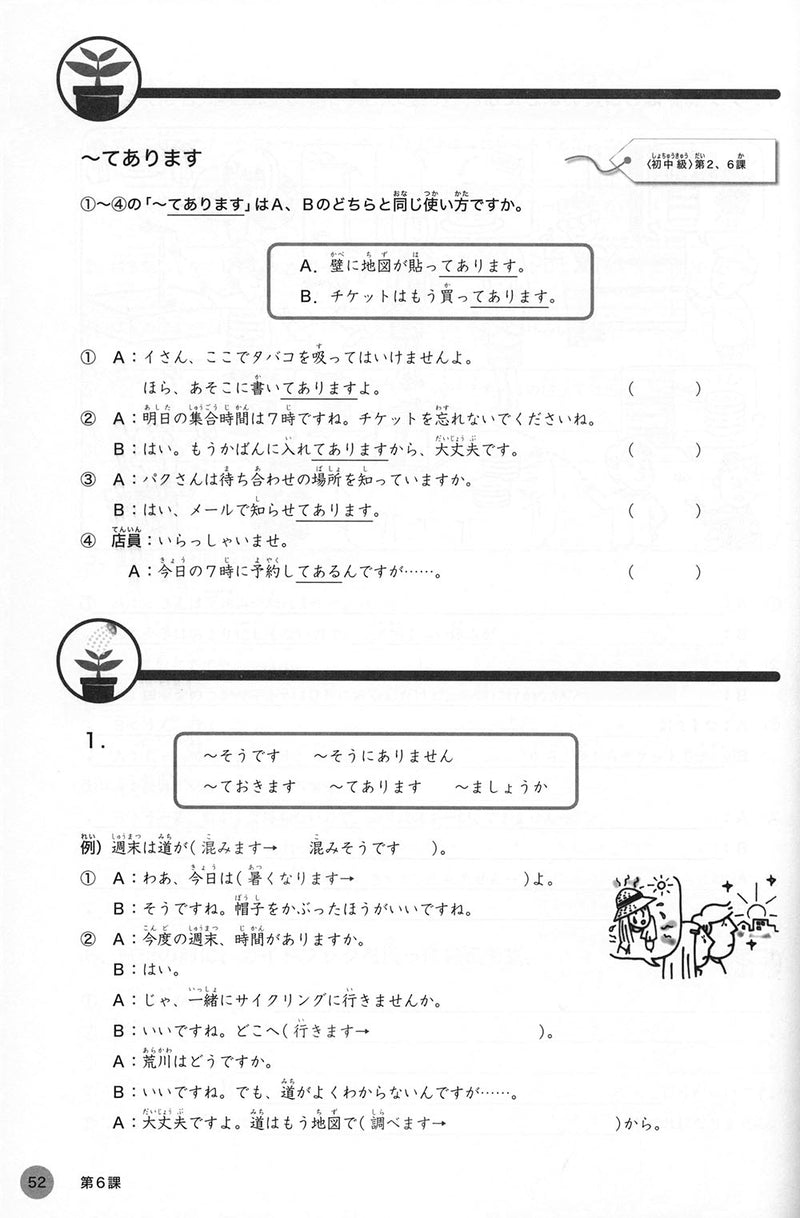 ～てあります
〈初中級〉第2、6課
①～④の「～てあります」はA、Bのどちらと同じ使い方ですか。
A. 壁に地図が貼ってあります。
B. チケットはもう買ってあります。
① A：イさん、ここでタバコを吸ってはいけませんよ。
ほら、あそこに書いてありますよ。 （　　）
② A：明日の集合時間は7時ですね。チケットを忘れないでくださいね。
B：はい。もうかばんに入れてありますから、大丈夫です。 （　　）
③ A：パクさんは待ち合わせの場所を知っていますか。
B：はい、メールで知らせてあります。 （　　）
④ 店員：いらっしゃいませ。
A：今日の7時に予約してあるんですが……。 （　　）
1.
～そうです　～そうにありません
～ておきます　～てあります　～ましょうか
例）週末は道が（ 混みます→　混みそうです　）。
① A：わあ、今日は（ 暑くなります→　　　　）よ。
B：そうですね。帽子をかぶったほうがいいですね。
② A：今度の週末、時間がありますか。
B：はい。
A：じゃ、一緒にサイクリングに行きませんか。
B：いいですね。どこへ（ 行きます→　　　　）。
A：荒川はどうですか。
B：いいですね。でも、道がよくわからないんですが……。
A：大丈夫ですよ。道はもう地図で（ 調べます→　　　　）から。
52　第6課